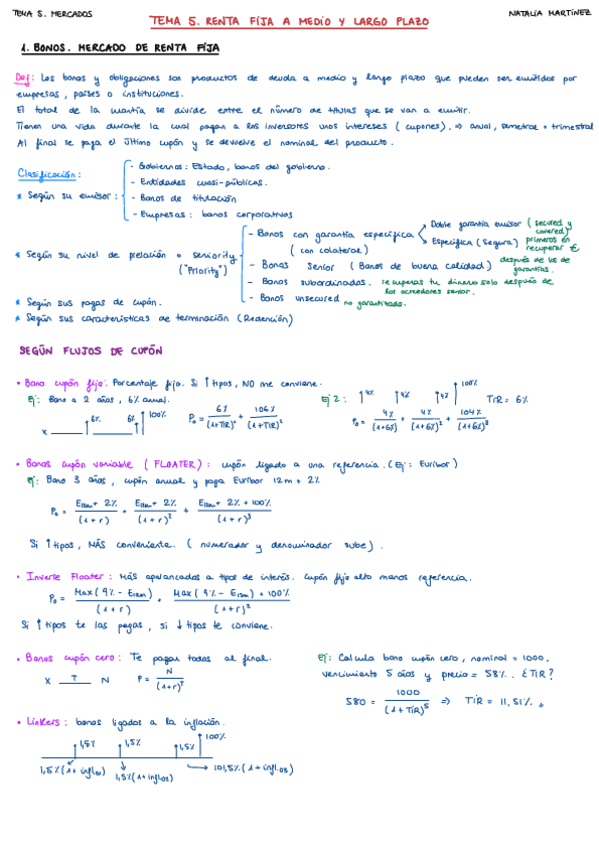 TEMA 5. MERCADOS
NATALIA MARTÍNEZ
TEMA 5. RENTA FIJA A MEDIO Y LARGO PLAZO
1. BONOS. MERCADO DE RENTA FIJA
Def: Los bonos y obligaciones son productos de deuda a medio y largo plazo que pueden ser emitidos por
empresas, países o instituciones.
El total de la cuantía se divide entre el número de títulos que se van a emitir.
Tienen una vida durante la cual pagan a los inversores unos intereses (cupones). ⇒ anual, semestral o trimestral
Al final se paga el último cupón y se devuelve el nominal del producto.
Clasificación:
* Según su emisor:
- Gobiernos: Estado, bonos del gobierno.
- Entidades cuasi-públicas.
- Bonos de titulación
- Empresas: bonos corporativos
* Según su nivel de prelación o seniority
("Priority")
- Bonos con garantía específica
(con colateral)
Doble garantía emisor (secured y covered)
Específica (segura) primeros en recuperar €
- Bonos Senior (Bonos de buena calidad) después de los de garantías.
- Bonos subordinados. recuperas tu dinero solo después de los acreedores senior.
- Bonos unsecured no garantizado.
* Según sus pagos de cupón.
* Según sus características de terminación (Redención)
SEGÚN FLUJOS DE CUPÓN
• Bono cupón fijo: Porcentaje fijo. Si ↑ tipos, NO me conviene.
Ej: Bono a 2 años, 6% anual.
x 6% 6% 100%
P₀ = 6% / (1+TIR)¹ + 106% / (1+TIR)²
Ej 2: 4% 4% 4% 100% TIR = 6%
P₀ = 4% / (1+6%) + 4% / (1+6%)² + 104% / (1+6%)³
• Bonos cupón variable (FLOATER): cupón ligado a una referencia. (Ej: Euribor)
Ej: Bono 3 años, cupón anual y paga Euribor 12m + 2%
P₀ = E₁₂ₘ + 2% / (1+r) + E₁₂ₘ + 2% / (1+r)² + E₁₂ₘ + 2% + 100% / (1+r)³
Si ↑ tipos, MÁS conveniente. (numerador y denominador sube).
• Inverse Floater: Más apalancados a tipos de interés. Cupón fijo alto menos referencia.
P₀ = Max (9% - E₁₂ₘ) / (1+r) + Max (9% - E₁₂ₘ) + 100% / (1+r)²
Si ↑ tipos te los pegas, si ↓ tipos te conviene.
• Bonos cupón cero: Te pagan todos al final.
x T N P = N / (1+r)ᵀ
Ej: Calcula bono cupón cero, nominal = 1000,
vencimiento 5 años y precio = 58%. ¿TIR?
580 = 1000 / (1+TIR)⁵ ⇒ TIR = 11,51%
• Linkers: bonos ligados a la inflación.
1,5% 1,5% 1,5% 100%
1,5% (1+infl.01)
1,5% (1+infl.02)
101,5% (1+infl.03)